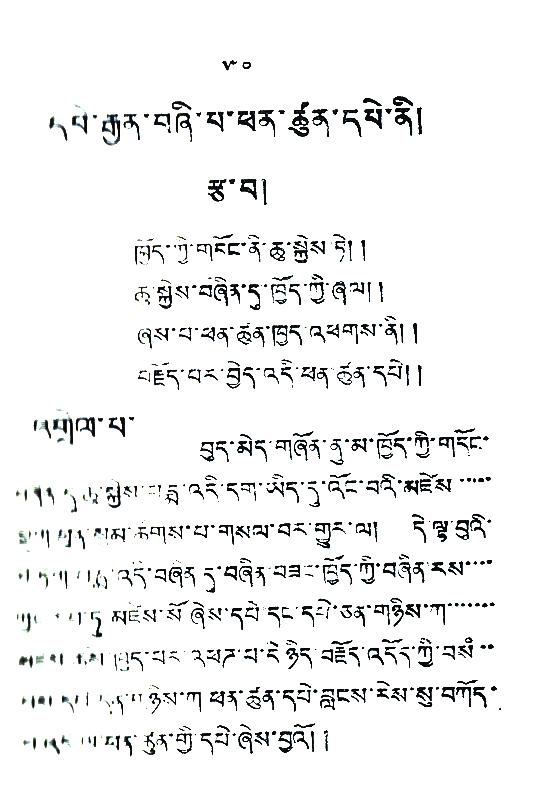 ༤༠
དཔེ་རྒྱན་བཞི་པ་ཕན་ཚུན་དཔེ་ནི།
རྩ་བ།
ཁྱོད་ཀྱི་གདོང་ནི་ཆུ་སྐྱེས་ཏེ། །
ཆུ་སྐྱེས་བཞིན་དུ་ཁྱོད་ཀྱི་ཞལ། །
ཞེས་པ་ཕན་ཚུན་ཁྱད་འཕགས་ནི། །
བརྗོད་པར་བྱེད་འདི་ཕན་ཚུན་དཔེ། །
འགྲེལ་པ་
བུད་མེད་གཞོན་ནུ་མ་ཁྱོད་ཀྱི་གདོང་
ཆུ་སྐྱེས་པདྨ་འདི་དག་ཡིད་དུ་འོང་བའི་མཛེས་.....
ཆགས་པ་གསལ་བར་གྱུར་ལ། དེ་ལྟ་བུའི་
འདི་བཞིན་དུ་བཞིན་བཟང་ཁྱོད་ཀྱི་བཞིན་རས་....
དུ་མཛེས་སོ་ཞེས་དཔེ་དང་དཔེ་ཅན་གཉིས་ཀ་.......
ཁྱད་པར་འཕགས་པ་དེ་ཉིད་བརྗོད་འདོད་ཀྱི་བསམ་..
གཉིས་ཀ་ཕན་ཚུན་དཔེ་བླངས་རེས་སུ་བཀོད་
ཕན་ཚུན་གྱི་དཔེ་ཞེས་བྱའོ། །